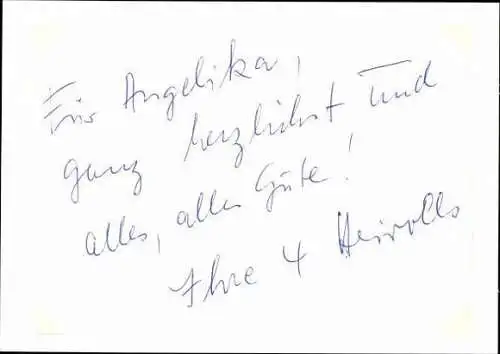 Für Angelika,
ganz herzlichst und
alles, alles Gute!
Ihre 4